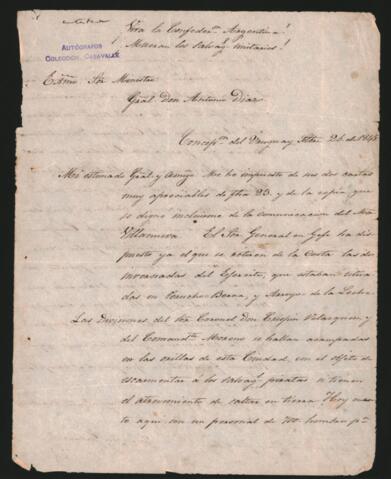 Viva la Confeder.n Argentina!
Mueran los Salvag.s Unitarios!
AUTÓGRAFOS
COLECCIÓN CASAVALLE
Exmo. Sor Ministro
Gral Don Antonio Diaz
Concep.n del Uruguay 26 de 1845
Mi estimado Gral y amigo. Me he impuesto de sus dos cartas
muy apreciables de fha 23. y de la copia que
se digno incluirme de la comunicacion del
Villanueva. El Sor General en Gefe ha dis-
puesto ya el que se retiren de la Costa las
del Egercito, que estaban situa-
das en y Arroyo de la Leche
Las Divisiones del Sor Coronel Don Crispin Velasquez y
del Comand.te Moreno se hallan acampadas
en las orillas de esta Ciudad, con el objeto de
escarmentar á los salvag.s piratas si tienen
el atrevimiento de saltar en tierra. Hoy
aqui con un personal de 700 hombres